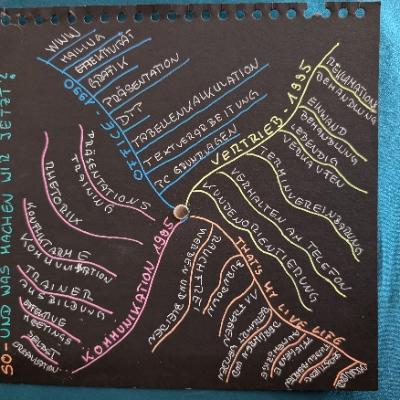 SO - UND WAS MACHEN WIR JETZT?
OFFICE - 1990
WWW
MAILING
EFFEKTIVITÄT
GRAFIK
PRÄSENTATION
DTP
TABELLENKALKULATION
TEXTVERARBEITUNG
PC GRUNDLAGEN
VERTRIEB - 1995
REKLAMATIONS
BEHANDLUNG
EINWAND
BEHANDLUNG
LEBENDIG
VERKAUFEN
TERMINVEREINBARUNG
VERHALTEN AM TELEFON
KUNDENORIENTIERUNG
KOMMUNIKATION 1995
PRÄSENTATIONS
TRAINING
RHETORIK
KONFLIKTARME
KOMMUNIKATION
TRAINER
AUSBILDUNG
EFFEKTIVE
MEETINGS
SELBST
ORGANISATION
THAT'S MY LIVE LIFE
RAUCHFREI
WERDEN UND BLEIBEN
BURNOUT